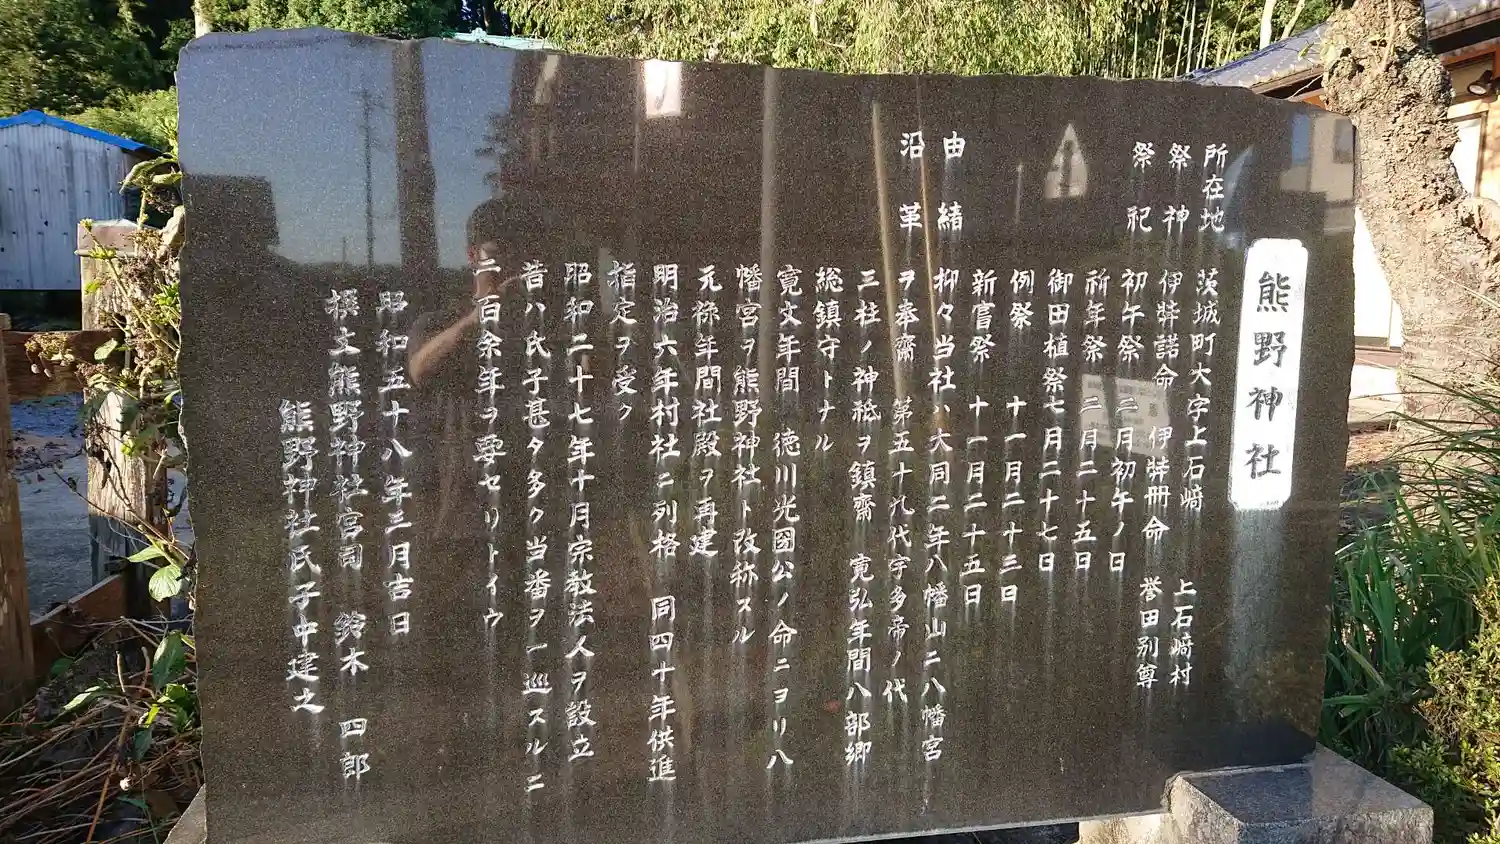 熊野神社
所在地 茨城町大字上石﨑 上石﨑村
祭神 伊弉諾命 伊弉冊命 誉田別尊
祭祀 初午祭 二月初午ノ日
祈年祭 二月二十五日
御田植祭 七月二十七日
例祭 十一月二十三日
新嘗祭 十一月二十五日
由緒 抑々当社ハ大同二年八幡山ニ八幡宮
沿革 ヲ奉齋 第五十九代宇多帝ノ代
三柱ノ神祇ヲ鎮齋 寛弘年間八部郷
総鎮守トナル
寛文年間 徳川光圀公ノ命ニヨリ八
幡宮ヲ熊野神社ト改称スル
元禄年間社殿ヲ再建
明治六年村社ニ列格 同四十年供進
指定ヲ受ク
昭和二十七年十月宗教法人ヲ設立
昔ハ氏子甚タ多ク当番ヲ一巡スルニ
二百余年ヲ要セリトイウ
昭和五十八年三月吉日
撰文熊野神社宮司 鈴木 四郎
熊野神社氏子中建之